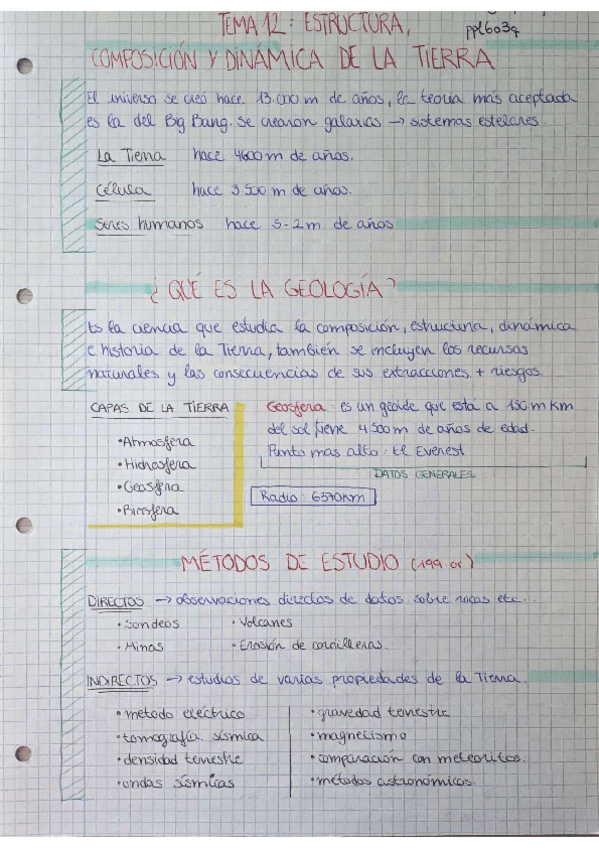 TEMA 12: ESTRUCTURA,
ppl603q
COMPOSICIÓN Y DINÁMICA DE LA TIERRA
El universo se creó hace 13.000 m de años, la teoría más aceptada
es la del Big Bang. Se crearon galaxias → sistemas estelares.
La Tierra hace 4600 m de años.
Célula hace 3500 m de años.
Seres humanos hace 5-2 m. de años
¿QUÉ ES LA GEOLOGÍA?
Es la ciencia que estudia la composición, estructura, dinámica
e historia de la Tierra, también se incluyen los recursos
naturales y las consecuencias de sus extracciones + riesgos.
CAPAS DE LA TIERRA
• Atmosfera
• Hidrosfera
• Geosfera
• Biosfera
Geosfera: es un geoide que está a 150 m Km
del sol, tiene 4500 m de años de edad.
Punto mas alto: El Everest
DATOS GENERALES
Radio: 6370 km
MÉTODOS DE ESTUDIO (199.or)
DIRECTOS → observaciones directas de datos sobre rocas etc...
• Sondeos • Volcanes
• Minas • Erosión de cordilleras.
INDIRECTOS → estudios de varias propiedades de la Tierra.
• metodo eléctrico
• tomografía sísmica
• densidad terrestre
• ondas sísmicas
• gravedad terrestre
• magnetismo
• comparación con meteoritos.
• métodos astronómicos.